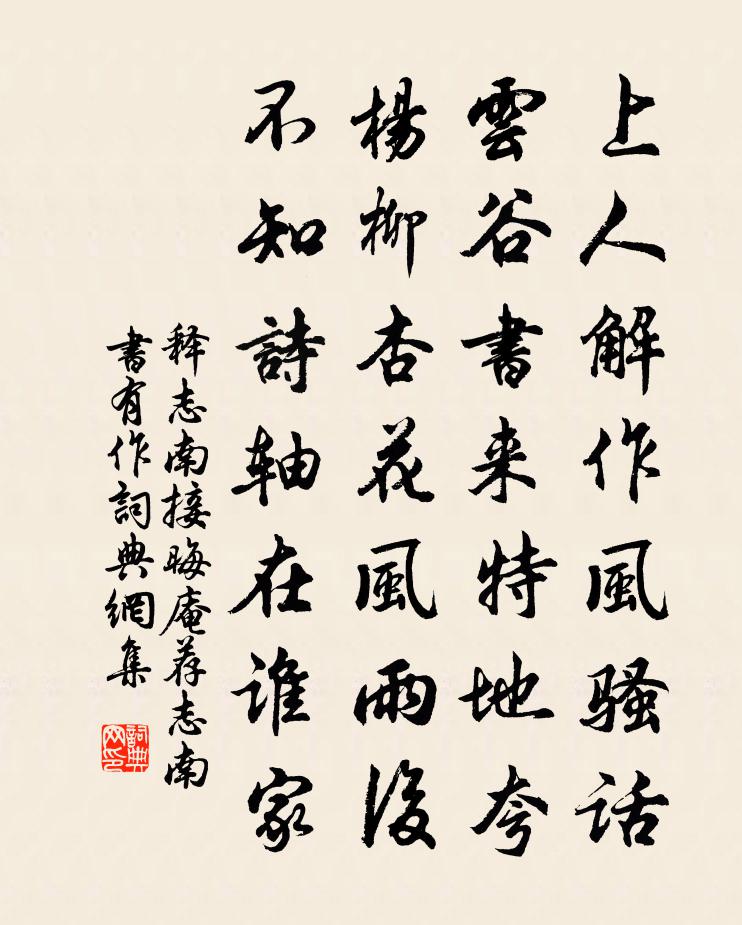 上人解作風騷话
雲谷書来特地夸
楊柳杏花風雨後
不知詩轴在谁家
释志南接晦庵荐志南
書有作詞典網集
詞典网印